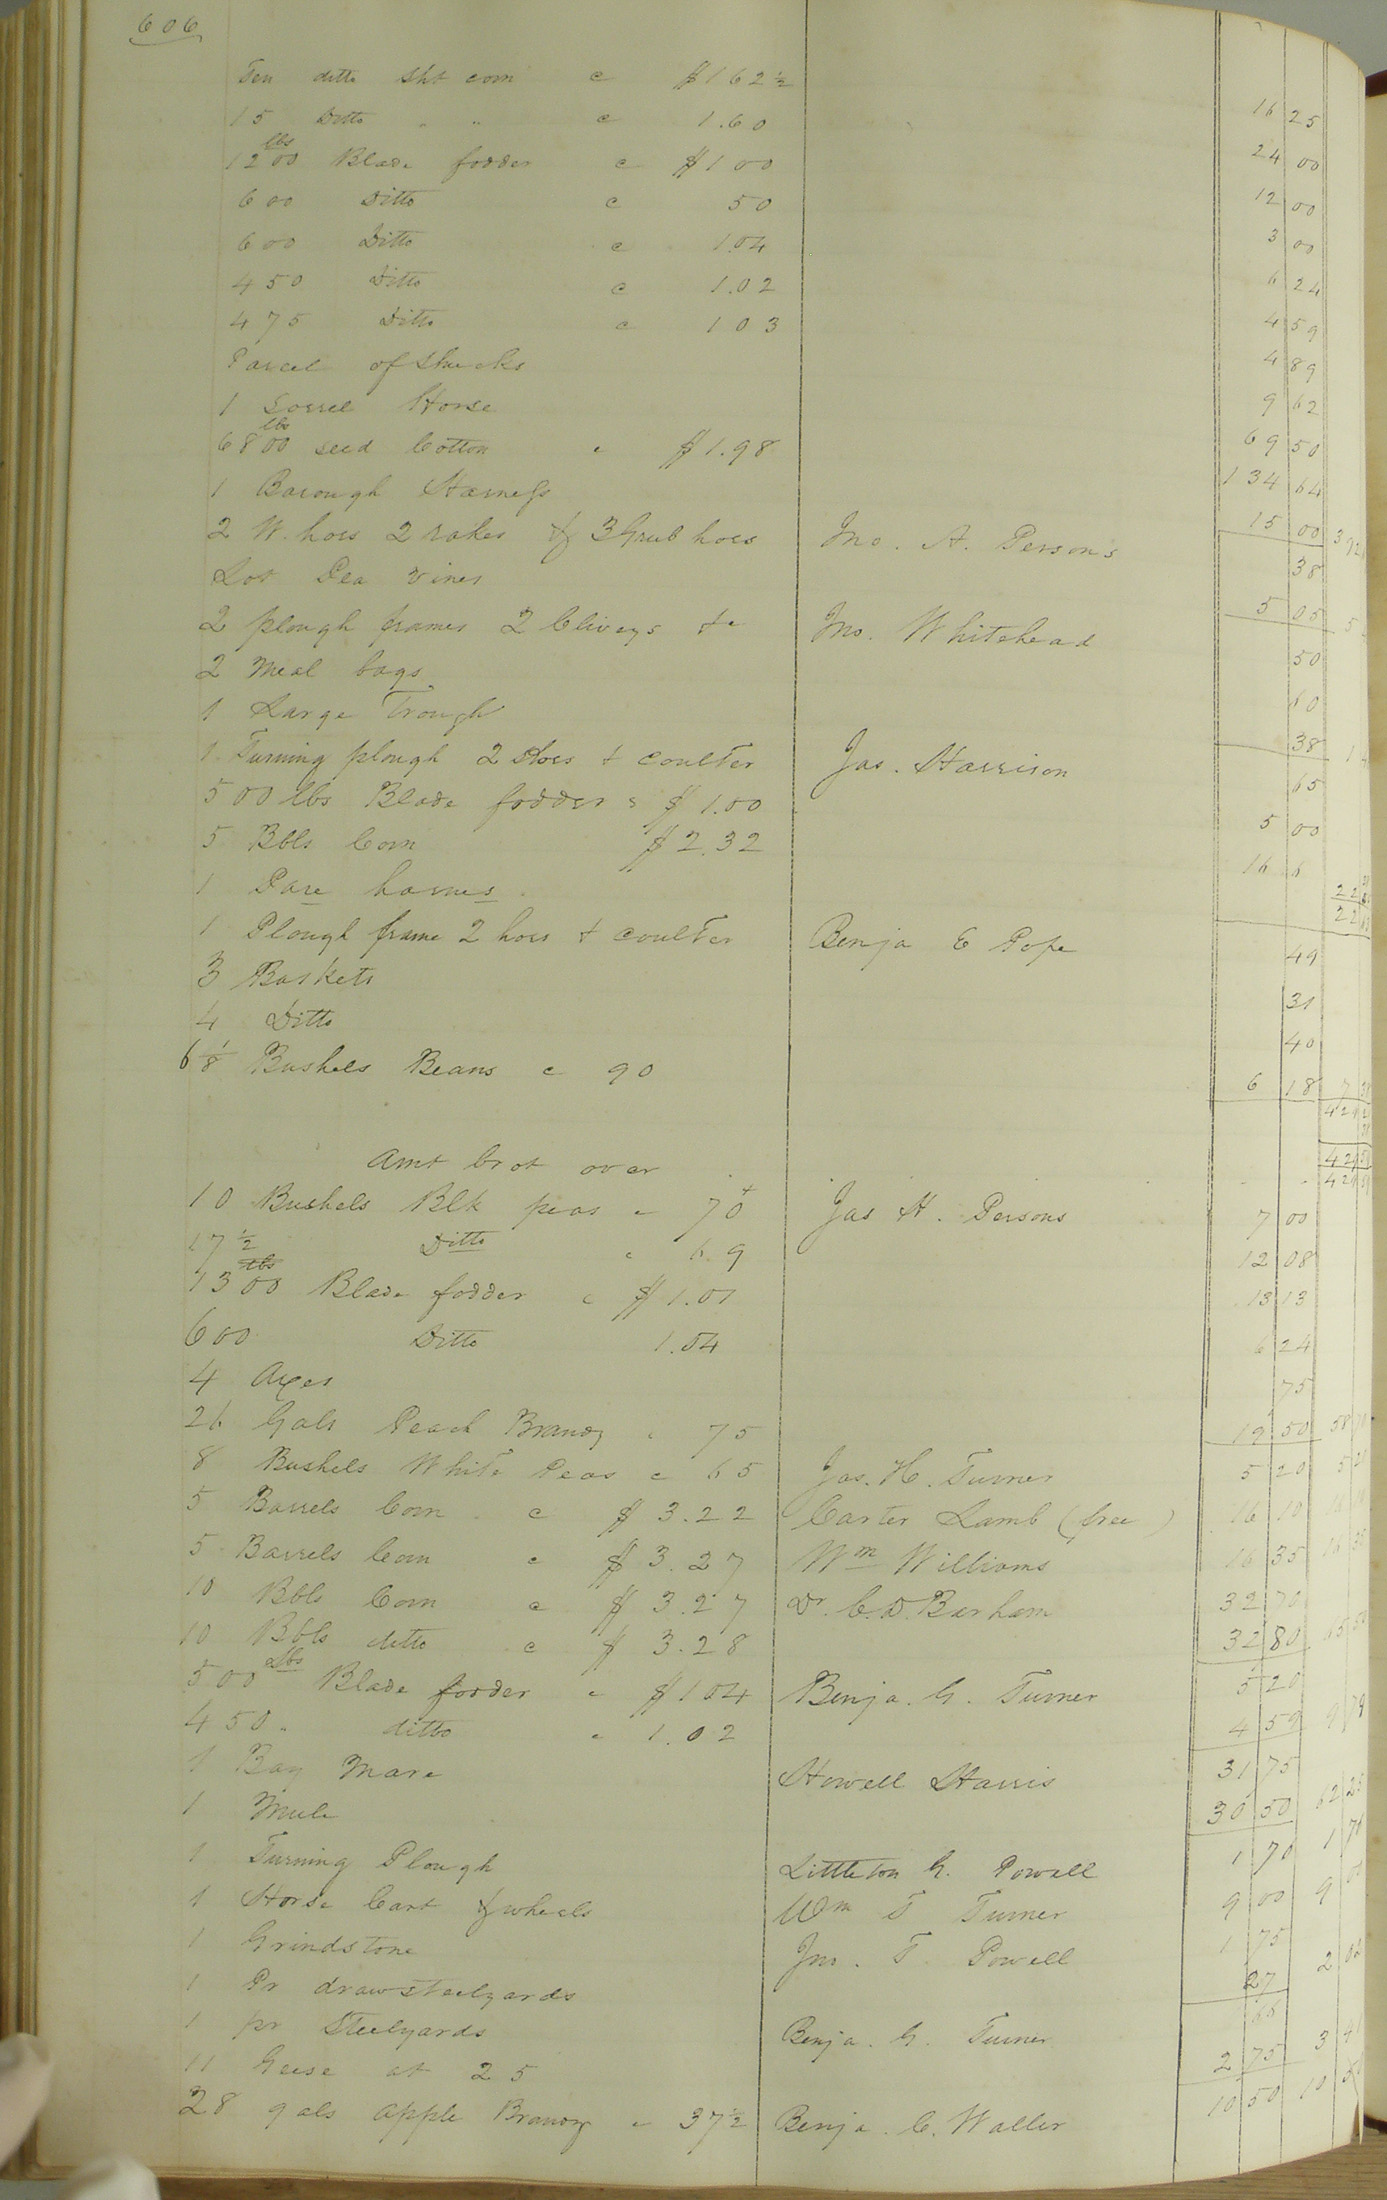 606
Ten ditto sht corn c $1 62½ 16 25
15 Ditto " " c 1.60 24 00
1200 lbs Blade fodder c $1 00 12 00
600 Ditto c 50 3 00
600 Ditto c 1.04 6 24
450 Ditto c 1.02 4 59
475 Ditto c 1 03 4 89
Parcel of Shucks 9 62
1 Sorrel Horse 69 50
6800 lbs seed Cotton c $1.98 134 64
1 Barough Harness 15 00
2 W. hoes 2 rakes & 3 Grub hoes Jno. A. Persons 38
Lot Pea vines 5 05
2 plough frames 2 Cliveys &c Jno. Whitehead 50
2 Meal bags 60
1 Large Trough 38
1 Turning plough 2 Hoes & coulter Jas. Harrison 65
500 lbs Blade fodder c $1.00 5 00
5 Bbls Corn $2.32 16 6
1 Pare hames
1 Plough frame 2 hoes & coulter Benja E Pope 49
3 Baskets 31
4 Ditto 40
6 1/8 Bushels Beans c 90 6 18
Amt brot over
10 Bushels Blk peas c 70 Jas H. Persons 7 00
17½ Ditto c 69 12 08
1300 lbs Blade fodder c $1.01 13 13
600 Ditto 1.04 6 24
4 Axes 75
26 Gals Peach Brandy c 75 19 50
8 Bushels White Peas c 65 Jas. H. Turner 5 20
5 Barrels Corn c $3.22 Carter Lamb (free) 16 10
5 Barrels Corn c $3.27 Wm Williams 16 35
10 Bbls Corn c $3.27 Dr. C. D. Barham 32 70
10 Bbls ditto c $3.28 32 80
500 Lbs Blade fodder c $1 04 Benja. G. Turner 5 20
450 " ditto c 1.02 4 59
1 Bay Mare Howell Harris 31 75
1 Mule 30 50
1 Turning Plough Littleton G. Powell 1 70
1 Horse Cart & wheels Wm T Turner 9 00
1 Grindstone Jno. T. Powell 1 75
1 Pr draw steelyards 27
1 pr Steelyards Benja. G. Turner 66
11 Geese at 25 2 75
28 gals Apple Brandy c 37½ Benja. C. Waller 10 50